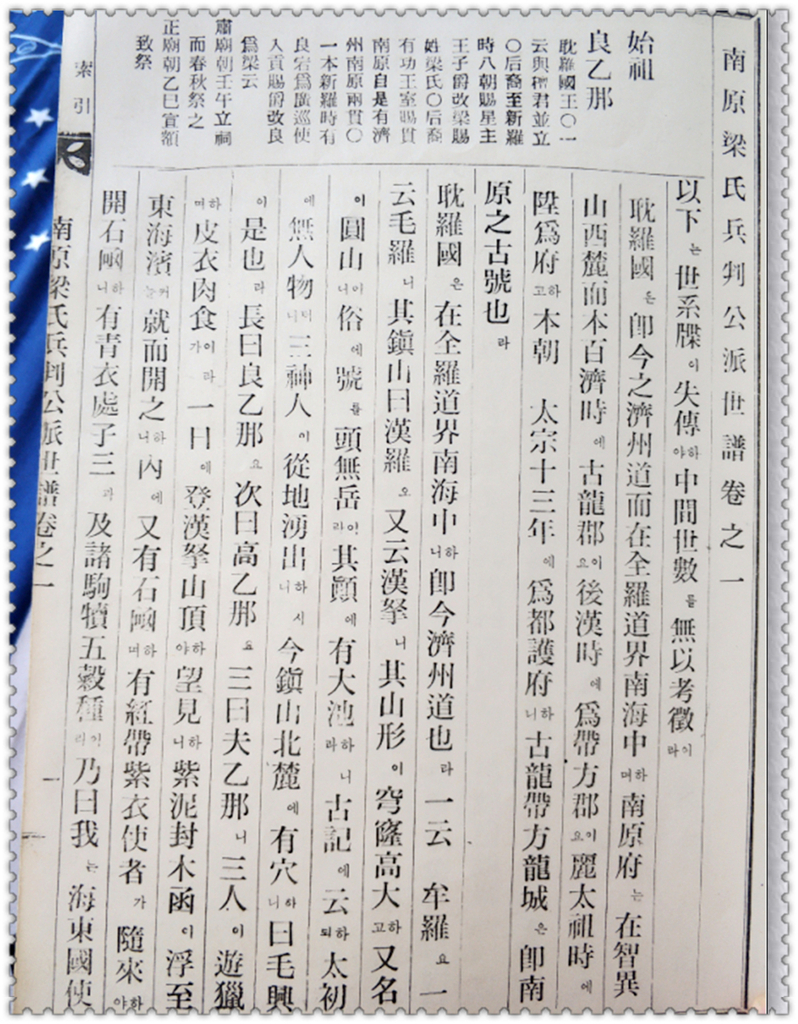 南原梁氏兵判公派世譜卷之一
始祖
良乙那
耽羅國王○一
云與檀君並立
○后裔至新羅
時八朝賜星主
王子爵改梁賜
姓梁氏○后裔
有功王室賜貫
南原自是有濟
州南原兩貫○
一本新羅時有
良宕爲廣巡使
入貢賜爵改良
爲梁云
肅廟朝壬午立祠
而春秋祭之
正廟朝乙巳宣額
致祭
以下는世系牒이失傳하야中間世數를無以考徵이라
耽羅國은卽今之濟州道而在全羅道界南海中하며南原府는在智異
山西麓而本百濟時에古龍郡이요後漢時에爲帶方郡이요麗太祖時에
陞爲府하고本朝 太宗十三年에爲都護府하니古龍帶方龍城은卽南
原之古號也라
耽羅國은在全羅道界南海中하니卽今濟州道也라一云 牟羅요一
云毛羅니其鎭山曰漢羅요又云漢拏니其山形이穹窿高大하고又名
이圓山이니俗에號를頭無岳이라其顚에有大池하라니古記에云하되太初
에無人物터니三神人이從地湧出하시니今鎭山北麓에有穴하니曰毛興
이是也라長曰良乙那요次曰高乙那요三曰夫乙那니三人이遊獵
하며皮衣肉食이라가一日에登漢拏山頂하야望見하니紫泥封木函이浮至
東海濱커늘就而開之하니內에又有石凾하며有紅帶紫衣使者가隨來하야
開石凾하니有青衣處子三과及諸駒犢五穀種이러라乃曰我는海東國使
索引
南原梁氏兵判公派世譜卷之一
一